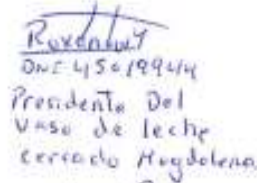 DNI 45019944
Presidente Del
Vaso de leche
cercado Magdalena